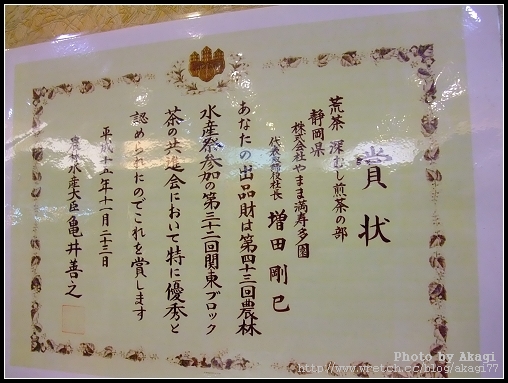 賞状
荒茶 深むし煎茶の部
静岡県
株式会社やまま満寿多園
代表取締役社長 増田剛巳
あなたの出品財は第四十三回農林
水産祭参加の第三十二回関東ブロック
茶の共進会において特に優秀と
認められたのでこれを賞します
平成十五年十一月二十三日
農林水産大臣 亀井善之
Photo by Akagi
http://www.wretch.cc/blog/akagi77